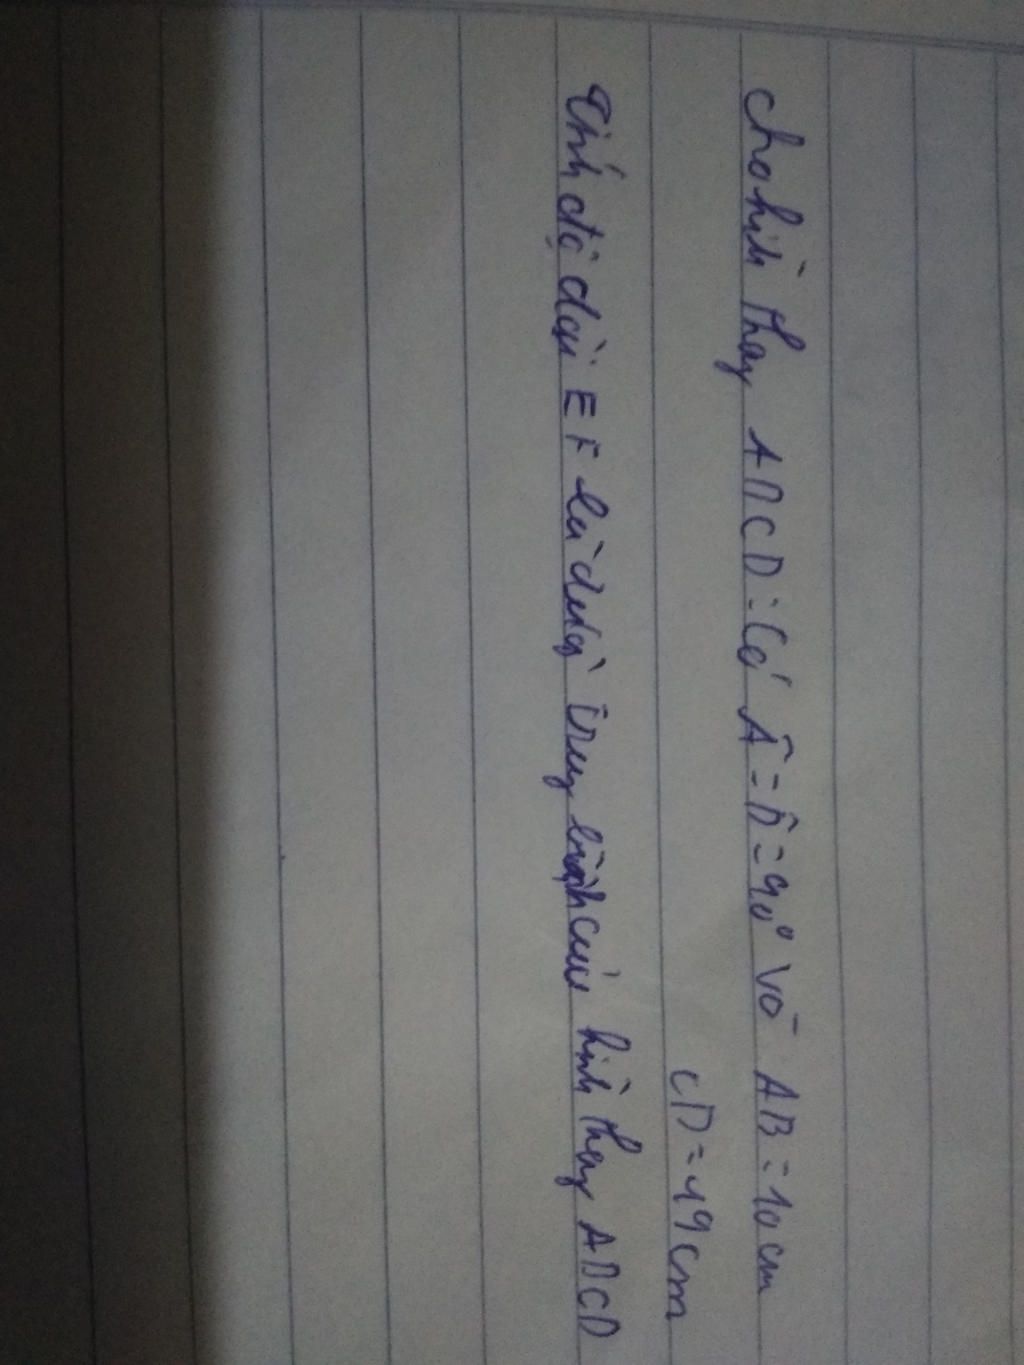 Cho hình thang ABCD: Có Â = D̂ = 90° và AB = 10 cm
CD = 19 cm
Tính độ dài EF là đường trung bình của hình thang ABCD